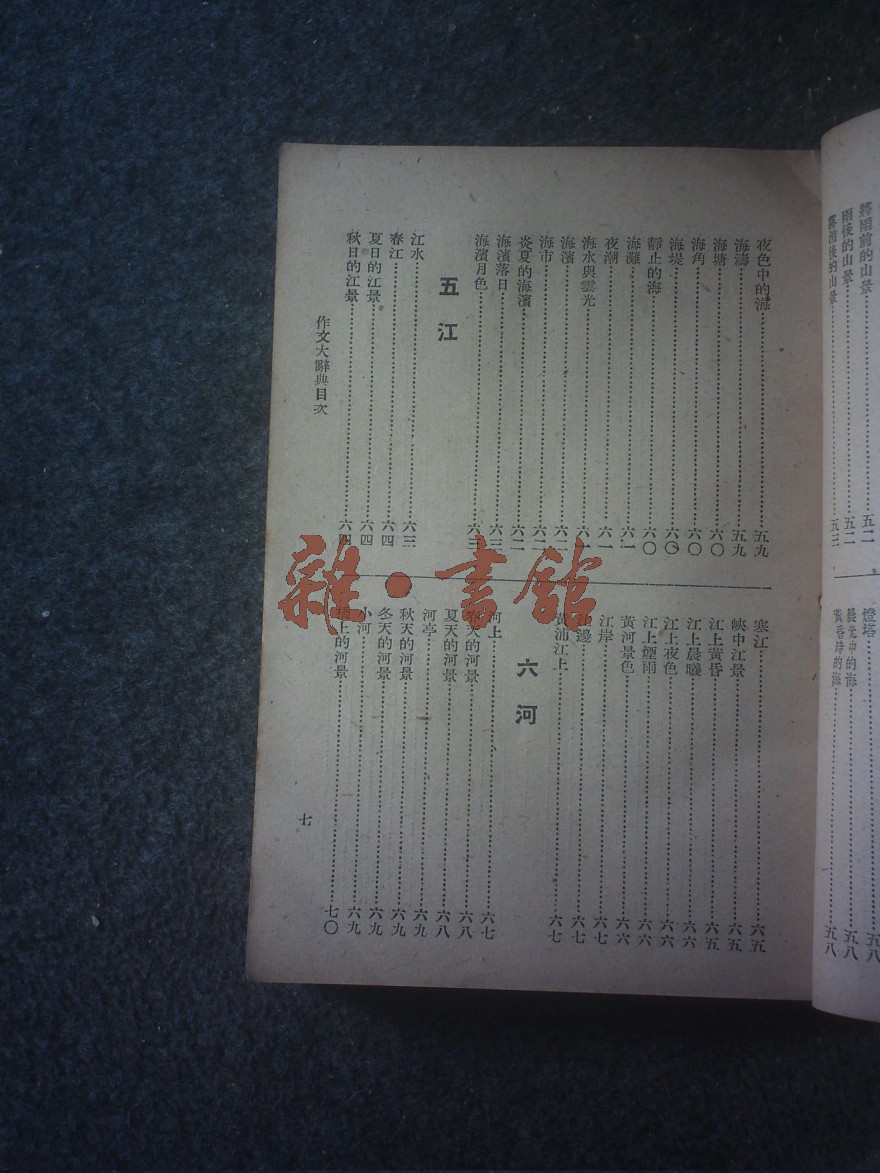 將雨前的山景……五二
雨後的山景……五二
雾雨後的山景……五三
燈塔……五八
晨光中的海……五八
黃昏時的海……五八
夜色中的海……五九
海濤……五九
海塘……六〇
海角……六〇
海堤……六〇
靜止的海……六〇
海灘……六一
夜潮……六一
海水與雲光……六一
海濱……六二
海市……六二
炎夏的海濱……六二
海濱落日……六三
海濱月色……六三
五 江
江水……六三
春江……六四
夏日的江景……六四
秋日的江景……六四
寒江……六五
峽中江景……六五
江上黃昏……六五
江上晨曦……六六
江上夜色……六六
江上煙雨……六六
黃河景色……六六
江岸……六七
江邊……六七
黃浦江上……六七
六 河
河上……六七
春天的河景……六八
夏天的河景……六八
河亭……六九
秋天的河景……六九
冬天的河景……六九
小河……六九
橋上的河景……七〇
作文大辭典目次
七
雜·書館